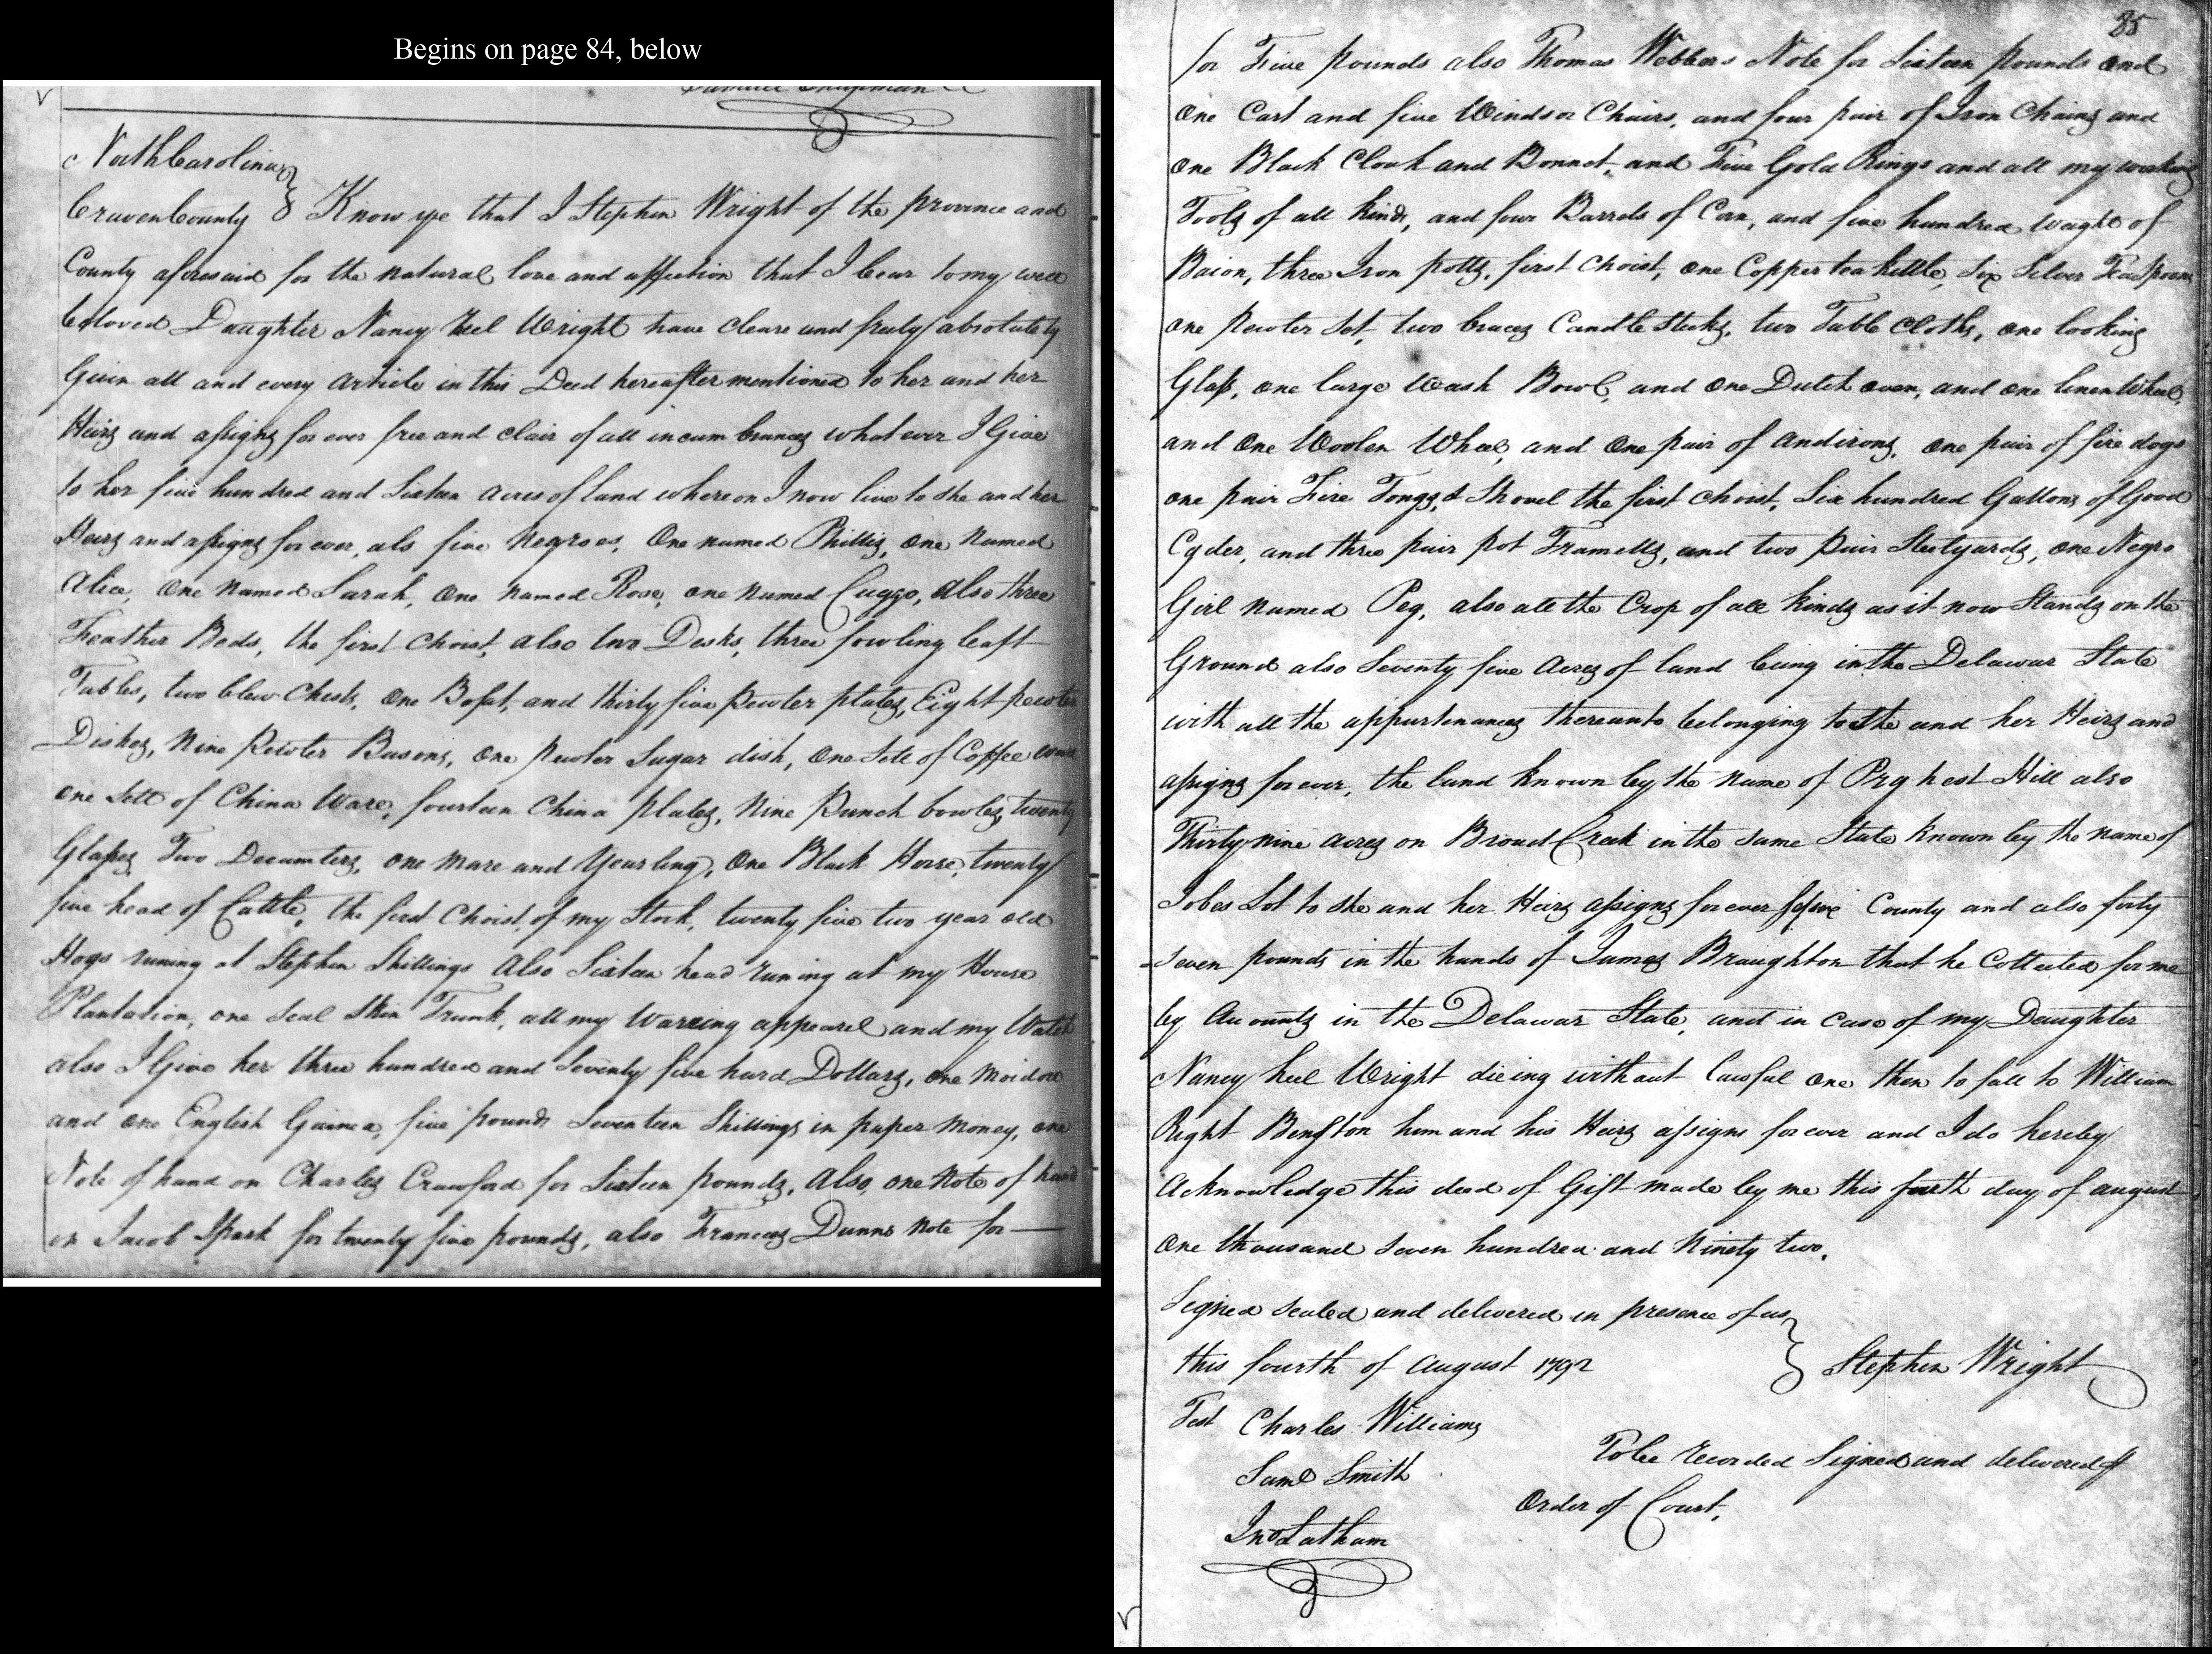 Begins on page 84, below
North Carolina
Craven County Know ye that I Stephen Wright of the province and
County aforesaid for the natural love and affection that I bear to my well
beloved Daughter Nancy Keel Wright have cleare and freely absolutely
Givin all and every Article in this Deed hereafter mentioned to her and her
Heirs and assigns for ever free and clair of all incumbrances what ever I Give
to her five hundred and Sixteen acres of land whereon I now live to she and her
Heirs and assigns for ever, als five Negroes, One named Phillis, one Named
Alice, One Named Sarah, One Named Rose, one Named Cuggo, also three
Feather Beds, the first Choist, also two Desks, three fowling leaft
Tables, two blew Chests, One Bofat, and thirty five Pewter plates, Eight pewter
Dishes, Nine Pewter Basons, One Pewter Sugar dish, One Sete of Coffee
one Sett of China Ware, fourteen China plates, Nine Punch bowles, twenty
Glasses Two Decanters, one Mare and Yearling, One Black Horse, twenty
five head of Cattle, the first Choist, of my Stock, twenty five two year old
Hogs runing at Stephen Shillings Also Sixteen head runing at my House
Plantation, one Seal Skin Trunk, all my Wareing appearel and my Watch
also I Give her three hundred and Seventy five hard Dollars, one Moidore
and one English Guinea, five pounds Seventeen Shillings in paper Money, one
Note of hand on Charles Crawford for Sixteen pounds, Also, one Note of hand
on Jacob Spark for twenty five pounds, also Frances Dunns Note for
85
for Five pounds also Thomas Webbers Note for Sixteen pounds and
One Cart and five Windsor Chairs, and four pair of Iron Chains and
One Black Cloak and Bonnet, and Five Gold Rings and all my working
Tools of all kinds, and four Barrels of Corn, and five hundred weight of
Bacon, three Iron potts, first Choist, one Copper tea kettle, Six Silver Teaspoons
one Pewter Sot, two braces Candle Steeks, two Table Cloths, one looking
Glass, one large Wash Bowl, and One Dutch oven, and one linen Wheel,
and One Woolen Wheel, and One pair of Andirons, one pair of fire dogs
one pair Fire Tongs, & Shovel the first Choist, Six hundred Gallons of Good
Cyder, and three pair pot Tramells, and two Pair Steelyards, one Negro
Girl Named Peg, also all the Crop of all kinds as it now Stands on the
Ground also Seventy five Acres of land being in the Delawar State
with all the appurtenances thereunto belonging to She and her Heirs and
assigns for ever, the land known by the Name of Prg hest Hill also
Thirty nine acres on Broad Creek in the same State known by the name of
Jobes Lot to she and her Heirs assigns for ever County and also forty
Seven pounds in the hands of James Braughton that he Collected for me
by Accounts in the Delawar State, and in case of my Daughter
Nancy Keel Wright dieing without Lawful one then to fall to William
Right Benston him and his Heirs assigns for ever and I do hereby
Acknowledge this deed of Gift made by me this fourth day of August
One thousand Seven hundred and Ninety two.
Signed Sealed and delivered in presence of us
this fourth of August 1792 Stephen Wright
Test Charles Williams
To be recorded Signed and delivered
Saml Smith
Order of Court,
Jno Latham